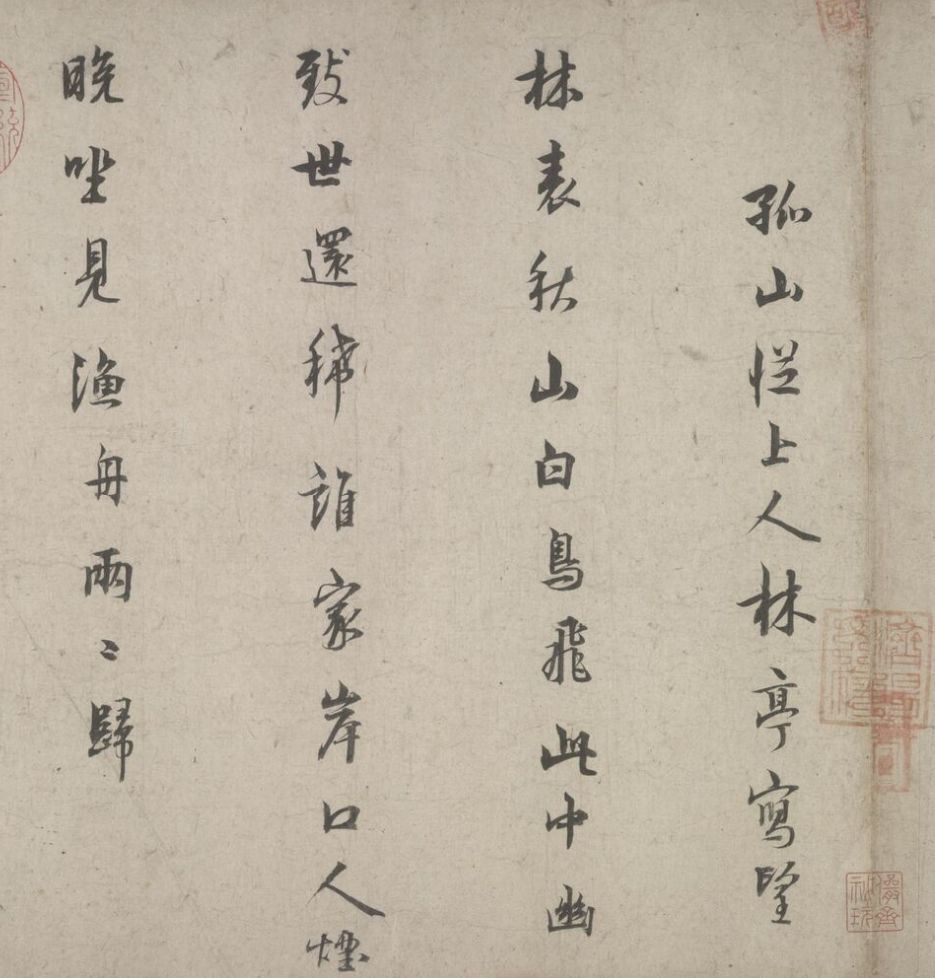 孤山従上人林亭寫望
林表秋山白鳥飛此中幽
致世還稀誰家岸口人煙
晚坐見漁舟兩〻歸